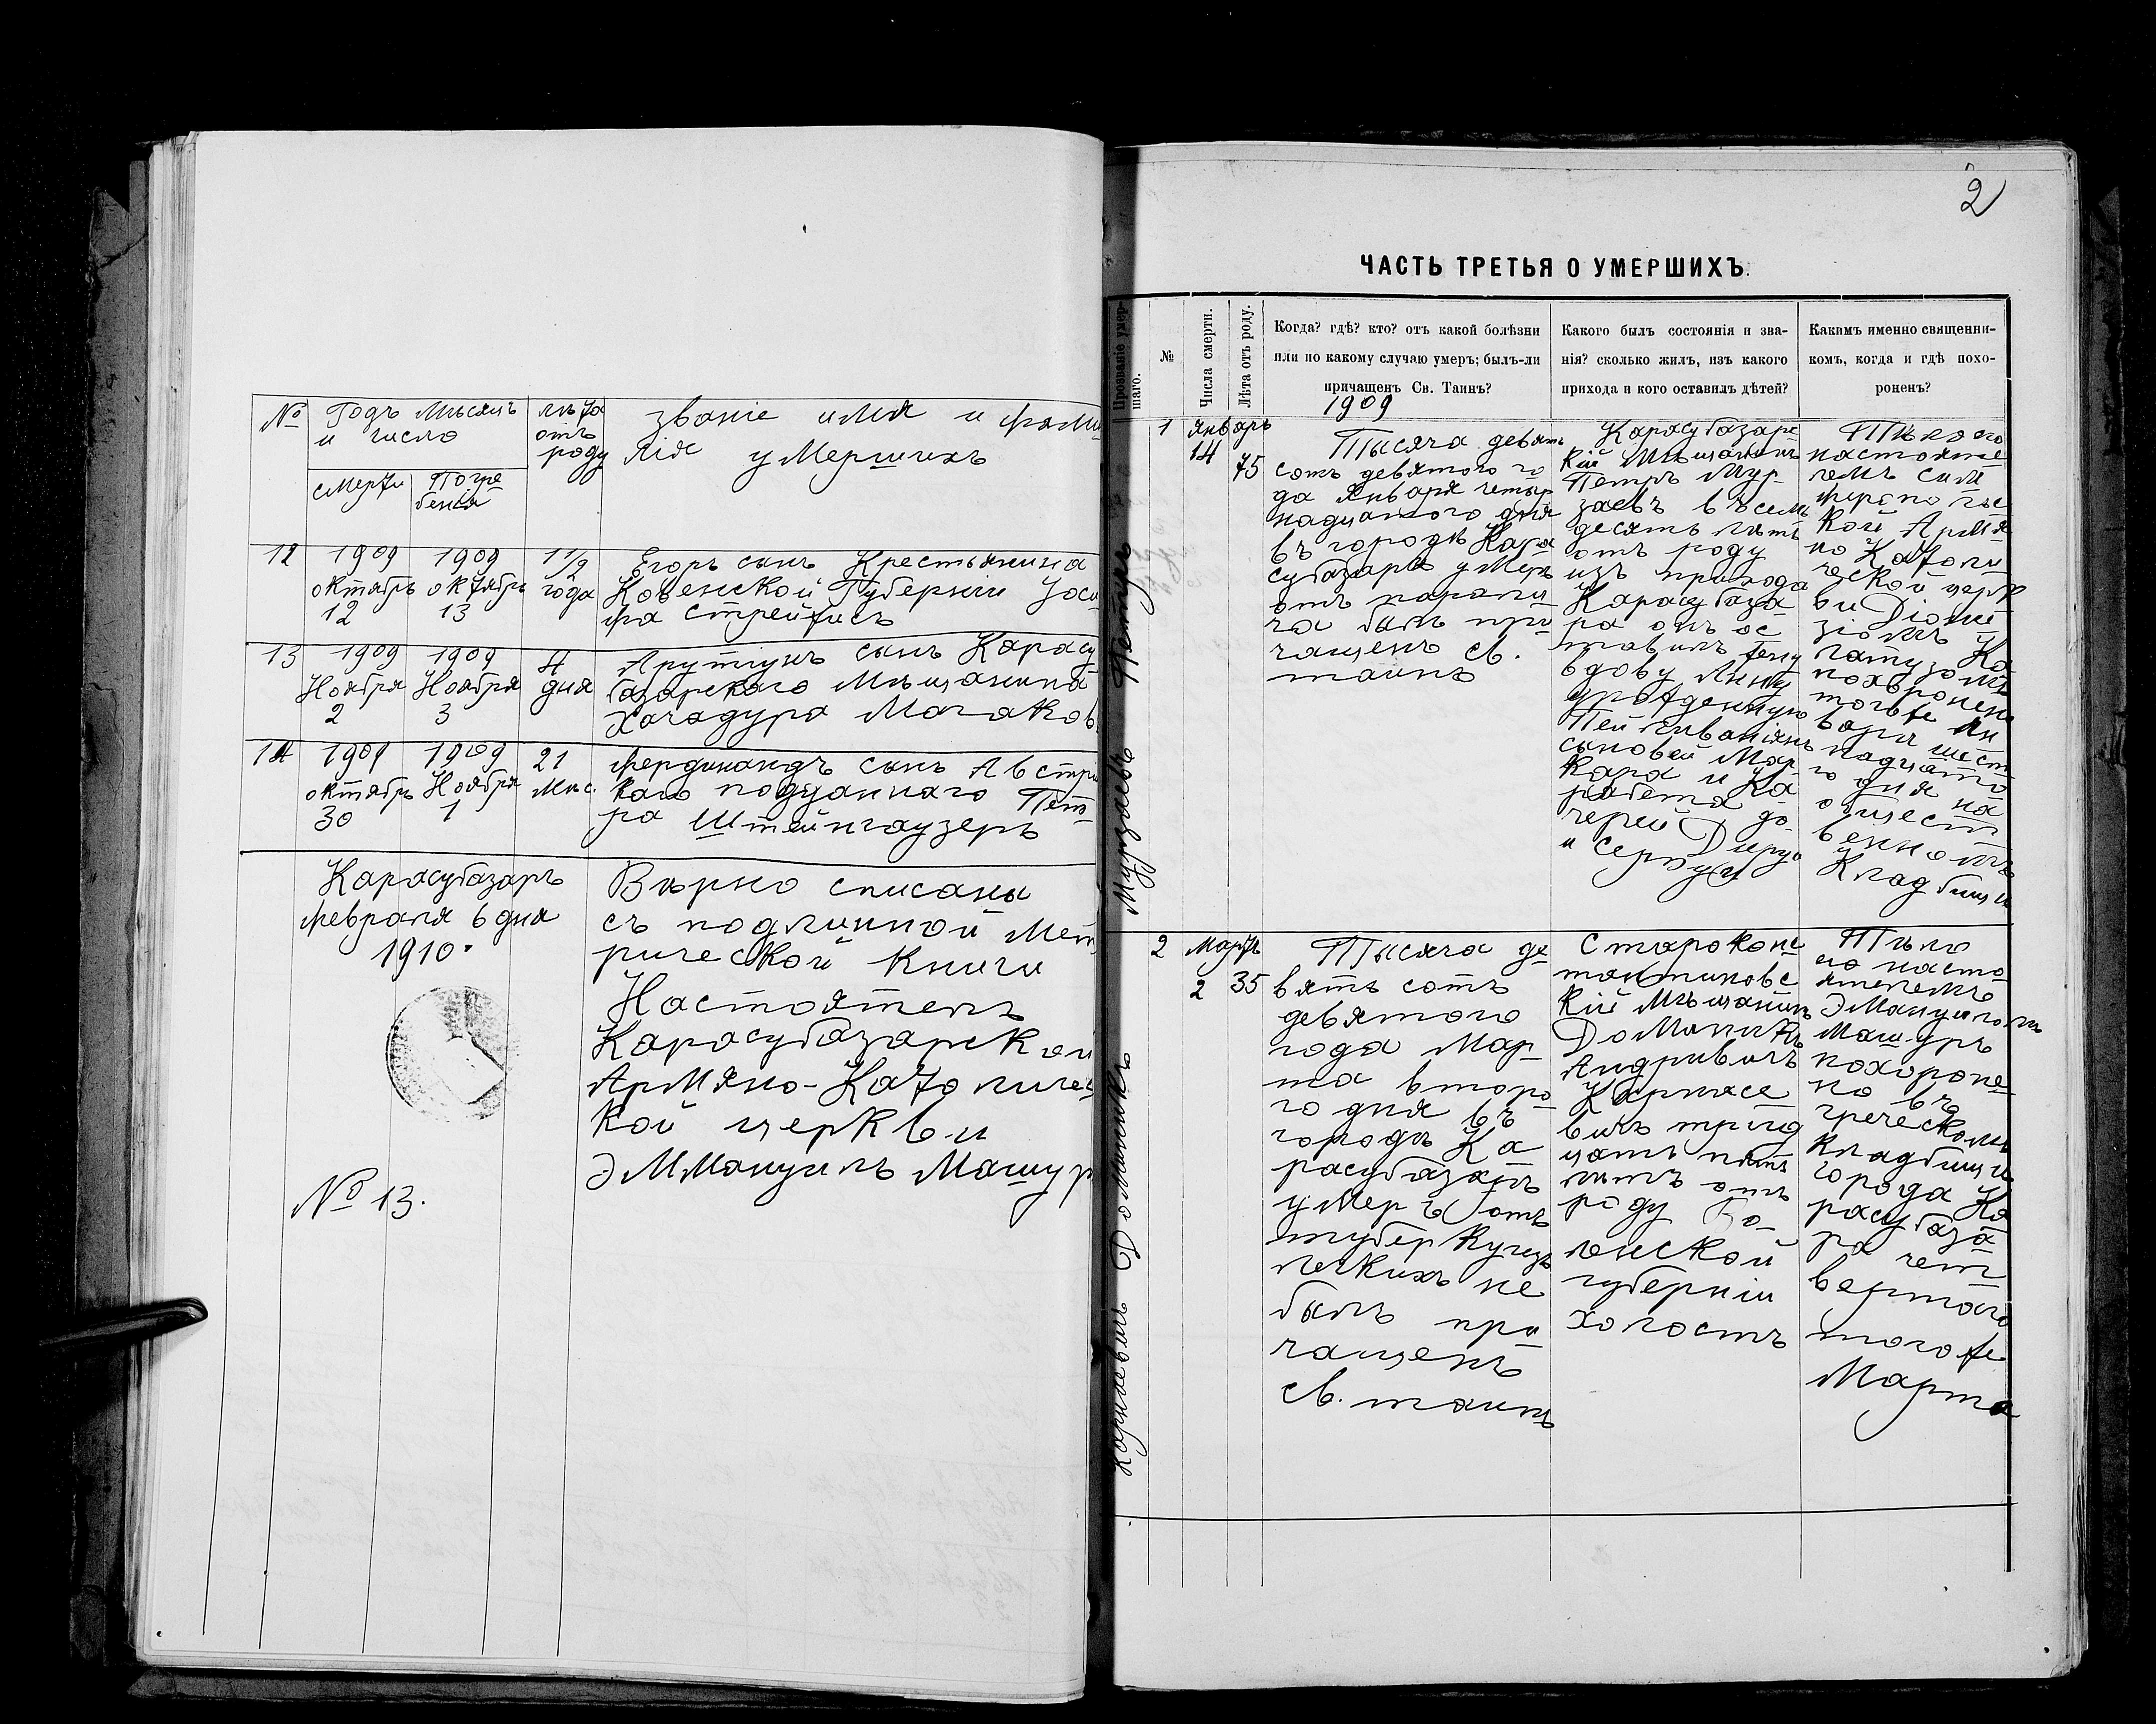 №
Годъ Мѣсяцъ
и число
смерти
Погре
бенія
лѣта
отъ
роду
званіе имя и фами
лія умершихъ
12
1909
октябрь
12
1909
октябрь
13
1 1/2
года
Егоръ сынъ Крестьянина
Ковенской Губерніи Іоси
фа Стрейкисъ
13
1909
Ноября
2
1909
Ноября
3
4
дня
Арутіунъ сынъ Карасу
базарскаго Мѣщанина
Хачадура Магаков
14
1909
октябрь
30
1909
Ноября
1
21
Мѣс.
Фердинандъ сынъ Австрій
каго подданнаго Пет
ра Штейнгаузеръ
Карасубазаръ
февраля 6 дня
1910.
№ 13.
Вѣрно списаны
съ подлинной Мет
рической Книги
Настоятель
Карасубазарской
Армяно-Католичес
кой церкви
Эммануилъ Машур
2
ЧАСТЬ ТРЕТЬЯ О УМЕРШИХЪ.
Прозваніе умер-
шаго.
№
Числа смерти.
Лѣта отъ роду.
Когда? гдѣ? кто? отъ какой болѣзни
или по какому случаю умеръ; былъ-ли
причащенъ Св. Таинъ?
Какого былъ состоянія и зва-
нія? сколько жилъ, изъ какого
прихода и кого оставилъ дѣтей?
Какимъ именно священни-
комъ, когда и гдѣ похо-
роненъ?
1909
Мурзаевъ Петръ
1
Январь
14
75
Тысяча девять
сотъ девятого го
да Января четыр
надцатого дня
въ городѣ Кара
субазарѣ умеръ
отъ парали
ча былъ при
чащенъ св.
таинъ
Карасубазарс
кій Мѣщанинъ
Петръ Мур
заевъ
десять лѣтъ
отъ роду
изъ прихода
Карасубаза
ра онъ ос
тавилъ жену
вдову Анну
урожденную
сыновей Мар
кара и Ка
рабета до
черей
и
Тѣло его
настояте
лемъ сим
феропольс
кой Армя
но Католи
ческой церк
ви Діони
зіомъ Ка
латузомъ
похоронено
тогоже Ян
варя шест
надцато
го дня на
общест
венномъ
Кладбищѣ
Карняевичъ Доминикъ
2
Мартъ
2
35
Тысяча де
вять сотъ
девятого
года Мар
та второ
го дня въ
городѣ Ка
расубазарѣ
умеръ отъ
туберкулеза
легкихъ не
былъ при
чащенъ
св. таинъ
Староконс
тантиновс
кій Мѣщанинъ
Доминикъ
Андріевичъ
Карняе
вичъ трид
цать пять
лѣтъ отъ
роду Во
ленской
губерніи
холостъ
Тѣло
его насто
ятелемъ
Эмануиломъ
Машуръ
похороне
но въ
греческомъ
кладбищѣ
города Ка
расубаза
ра чет
вертаго
тогоже
Марта